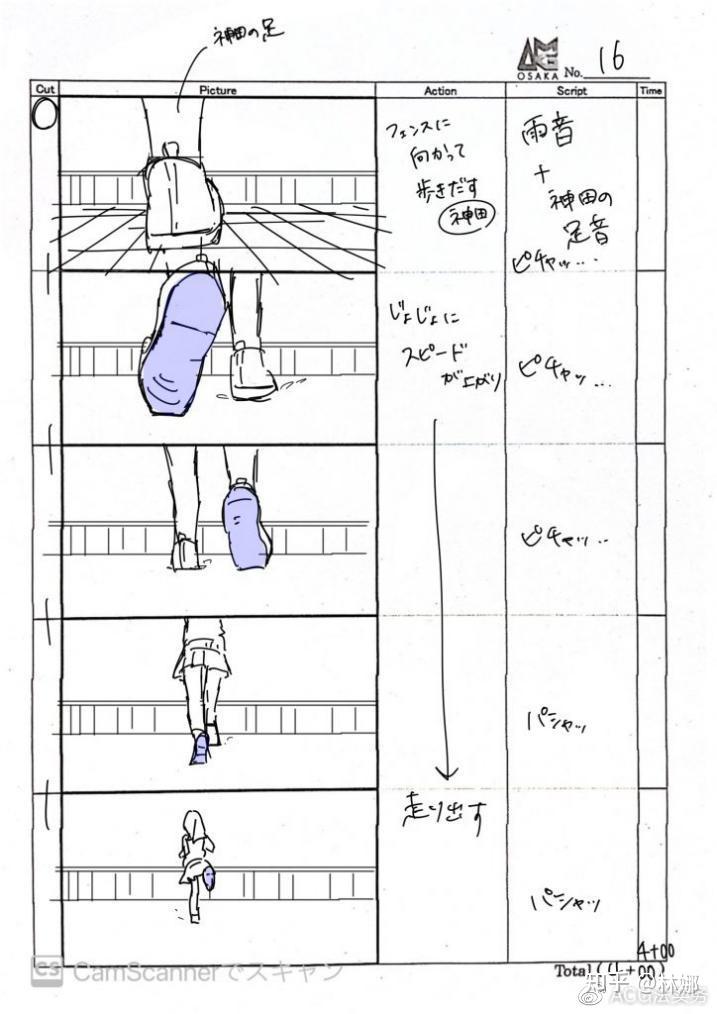 神田の足
AMG
OSAKA No. 16
Cut Picture Action Script Time
フェンスに
向かって
歩きだす
神田
雨音
+
神田の
足音
ピチャッ...
じょじょに
スピード
が上がり
ピチャッ...
ピチャッ..
パシャッ
走り出す
パシャッ
4+00
Total (4+00)
CS CamScannerでスキャン
知乎 @林娜
ACG法安务